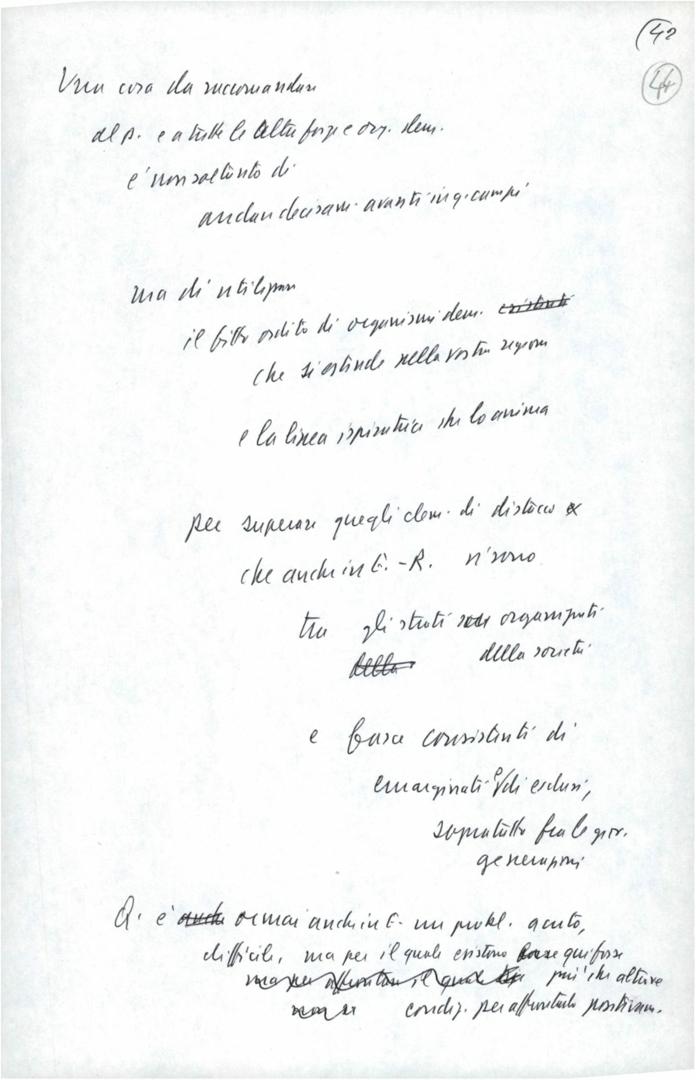 (42
44
Una cosa da raccomandare
al p. e a tutte le altre forze e org. dem.
è non soltanto di
andar decisam. avanti in q. campi
ma di utilizzare
il fitto ordito di organismi dem. esistenti
che si estende nella vostra regione
e la linea ispiratrice che lo anima
per superare quegli elem. di distacco
che anche in E.-R. vi sono
tra gli strati organizzati
della della società
e fasce consistenti di
emarginati e/o di esclusi,
sopratutto fra le giov.
generazioni
Q. è anche ormai anche in E. un probl. acuto,
difficile, ma per il quale esistono forse qui forse
ma per affrontare il quale più che altrove
non si condiz. per affrontarlo positivam.